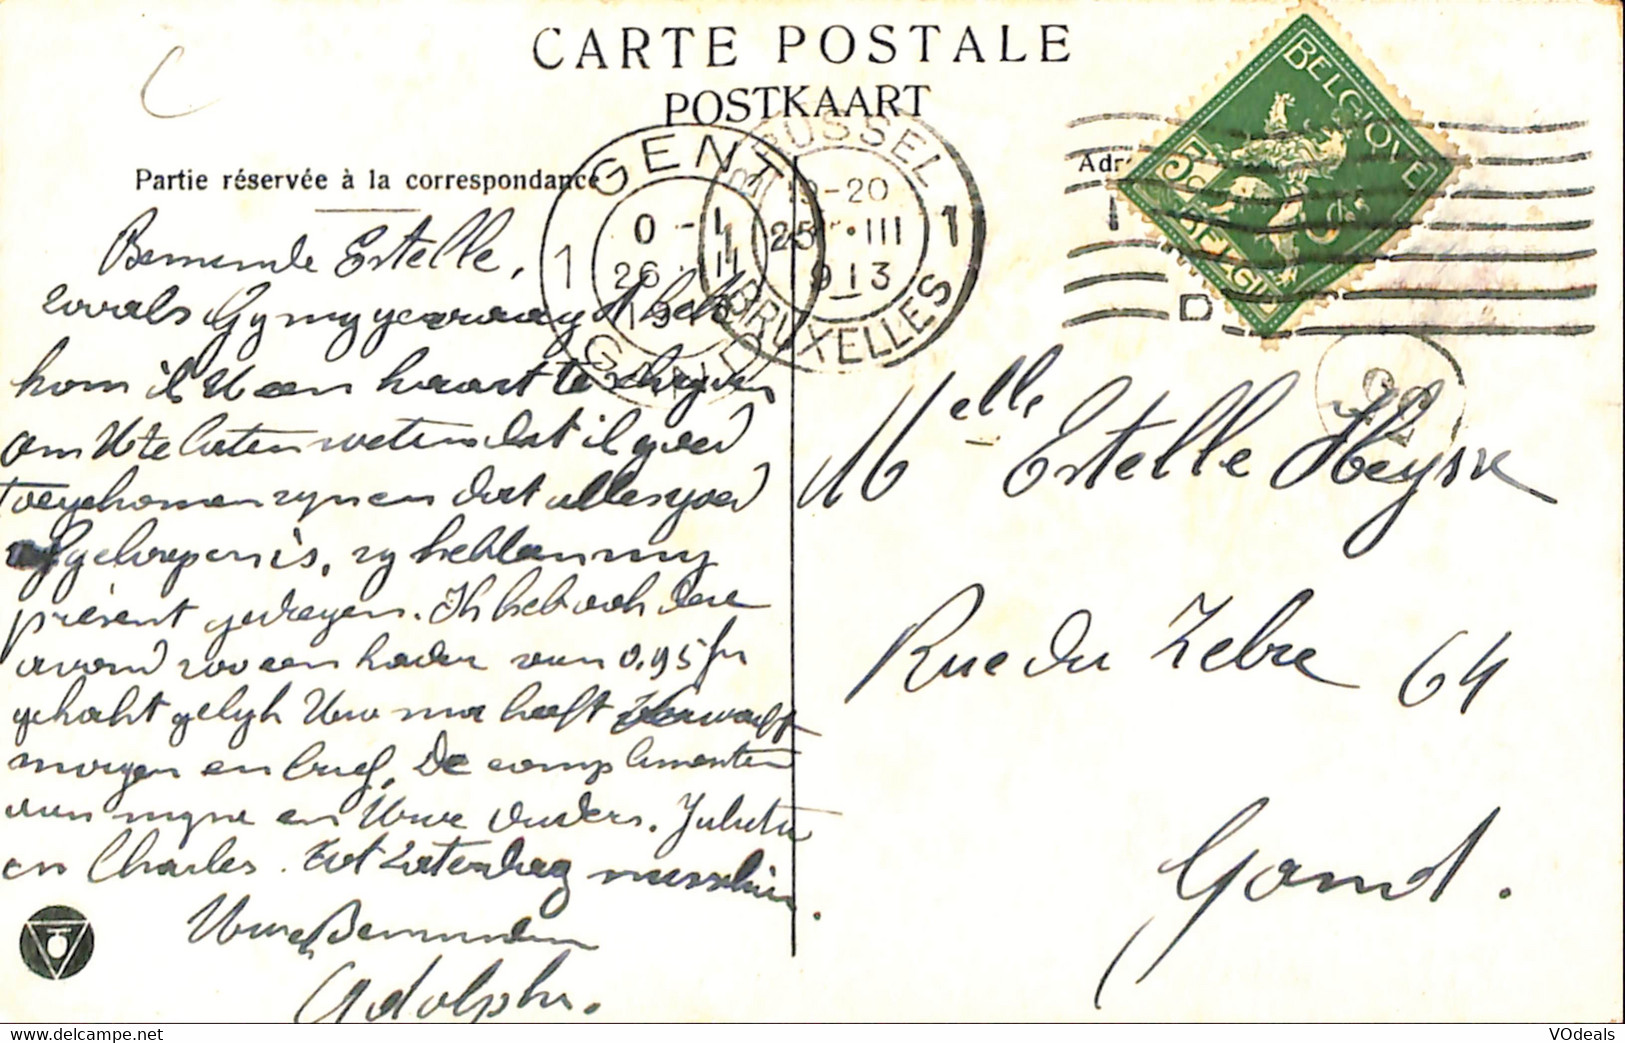 CARTE POSTALE
POSTKAART
Partie réservée à la correspondance
Adr
BRUSSEL
19-20
25 III
1
913
BRUXELLES
GENT
1
0-1
26 III
GAND
BELGIQUE
5 cs
BELGIË
Beminde Estelle,
zooals Gy my gevraagd heb
kom ik U een kaart te schryven
om U te laten weten dat ik goed
toegekomen zyn en dat alles goed
afgeloopen is, zy hebben my
présent gedragen. Ik heb ook deze
avond zoo een kader van 0.95 fr
gekocht gelyk Uw ma heeft
morgen en brief. De complimenten
aan myne en Uwe ouders. Juliette
en Charles. Tot Zaterdag misschien.
Uwe Beminden
Adolphe.
Melle Estelle Heyse
Rue du Zebre 64
Gand.
VOdeals